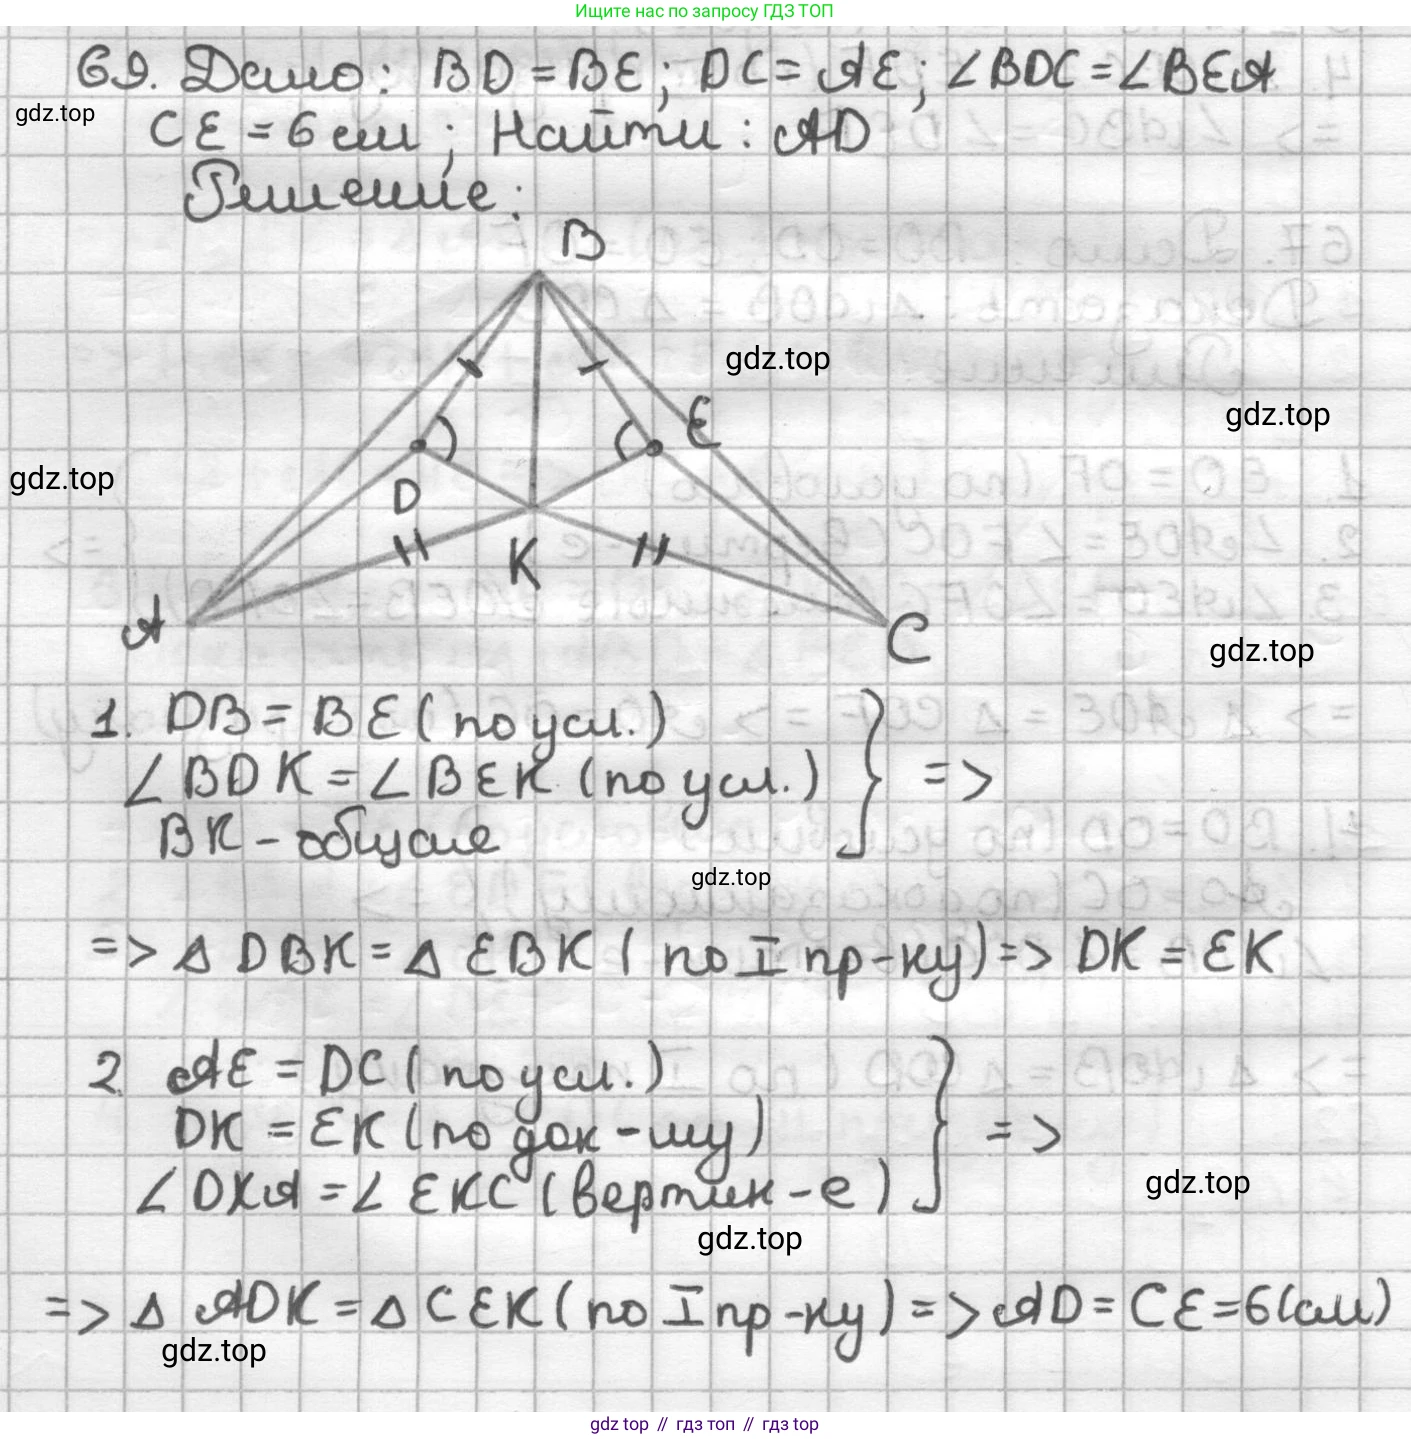 Ищите нас по запросу ГДЗ ТОП
69. Дано: BD = BE; DC = AE; ∠BDC = ∠BEA
gdz.top
CE = 6 см; Найти: AD
Решение:
B
gdz.top
E
gdz.top
gdz.top
D
K
A
C
gdz.top
1. DB = BE (по усл.)
∠BDK = ∠BEK (по усл.) } =>
BK - общая
gdz.top
=> Δ DBK = Δ EBK ( по I пр-ку) => DK = EK
2. AE = DC ( по усл.)
DK = EK (по док-му) } =>
∠DKA = ∠ EKC (вертик-е)
gdz.top
gdz.top
=> Δ ADK = Δ CEK ( по I пр-ку) => AD = CE = 6(см)
gdz.top
gdz top // гдз топ // гдз top